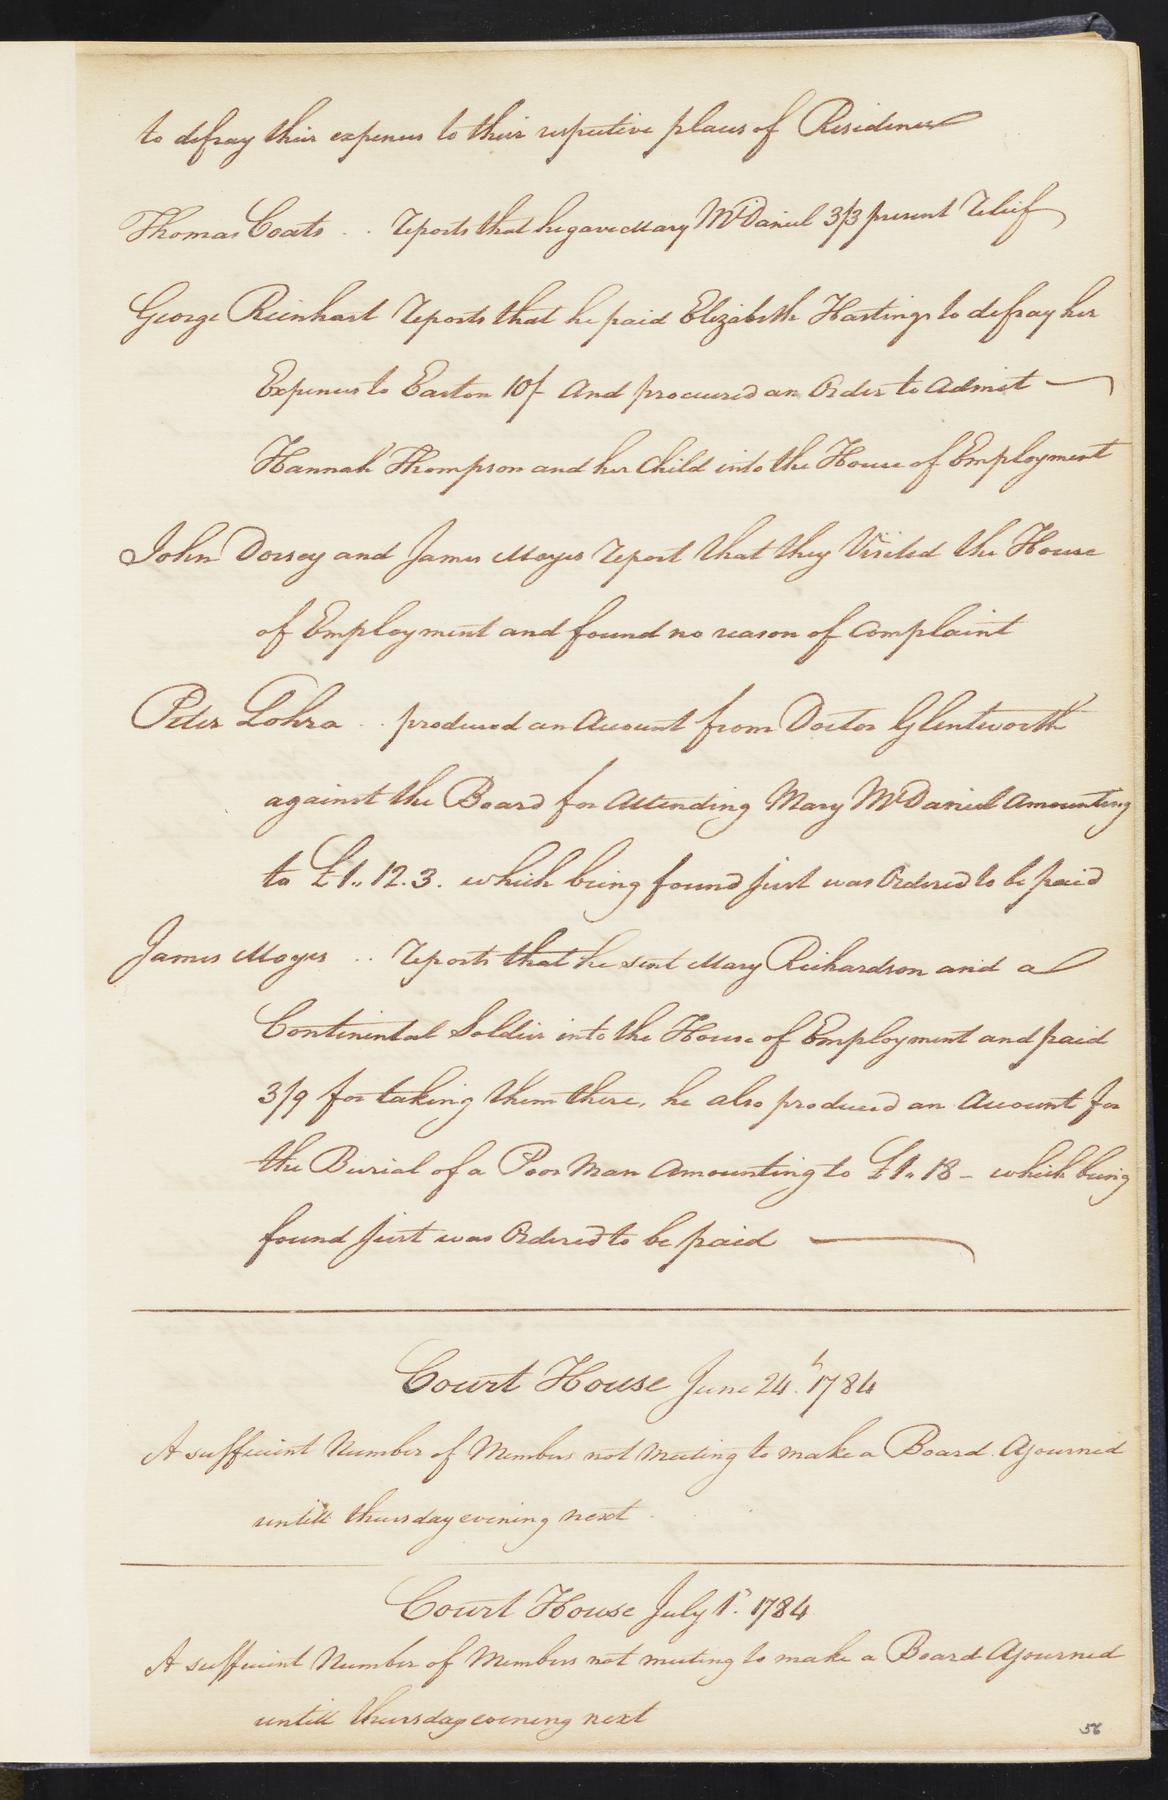 to defray their expences to their respective places of Residence
Thomas Coats .. reports that he gave Mary McDaniel 3/3 present relief
George Reinhart reports that he paid Elizabeth Hastings to defray her
Expences to Easton 10/- And procured an Order to Admit
Hannah Thompson and her Child into the House of Employment
John Dorsey and James Moyes report that they Visited the House
of Employment and found no reason of Complaint
Peter Lohra .. produced an Account from Doctor Glentworth
against the Board for Attending Mary McDaniel Amounting
to £1,, 12. 3. which being found just was Ordered to be paid
James Moyes .. reports that he sent Mary Richardson and a
Continental Soldier into the House of Employment and paid
3/9 for taking them there, he also produced an Account for
the Burial of a Poor Man Amounting to £1,, 18 - which being
found just was Ordered to be paid
Court House June 24th 1784
A sufficient Number of Members not meeting to make a Board Ajourned
untill thursday evening next
Court House July 1st 1784
A sufficient Number of Members not meeting to make a Board Ajourned
untill thursday evening next
56